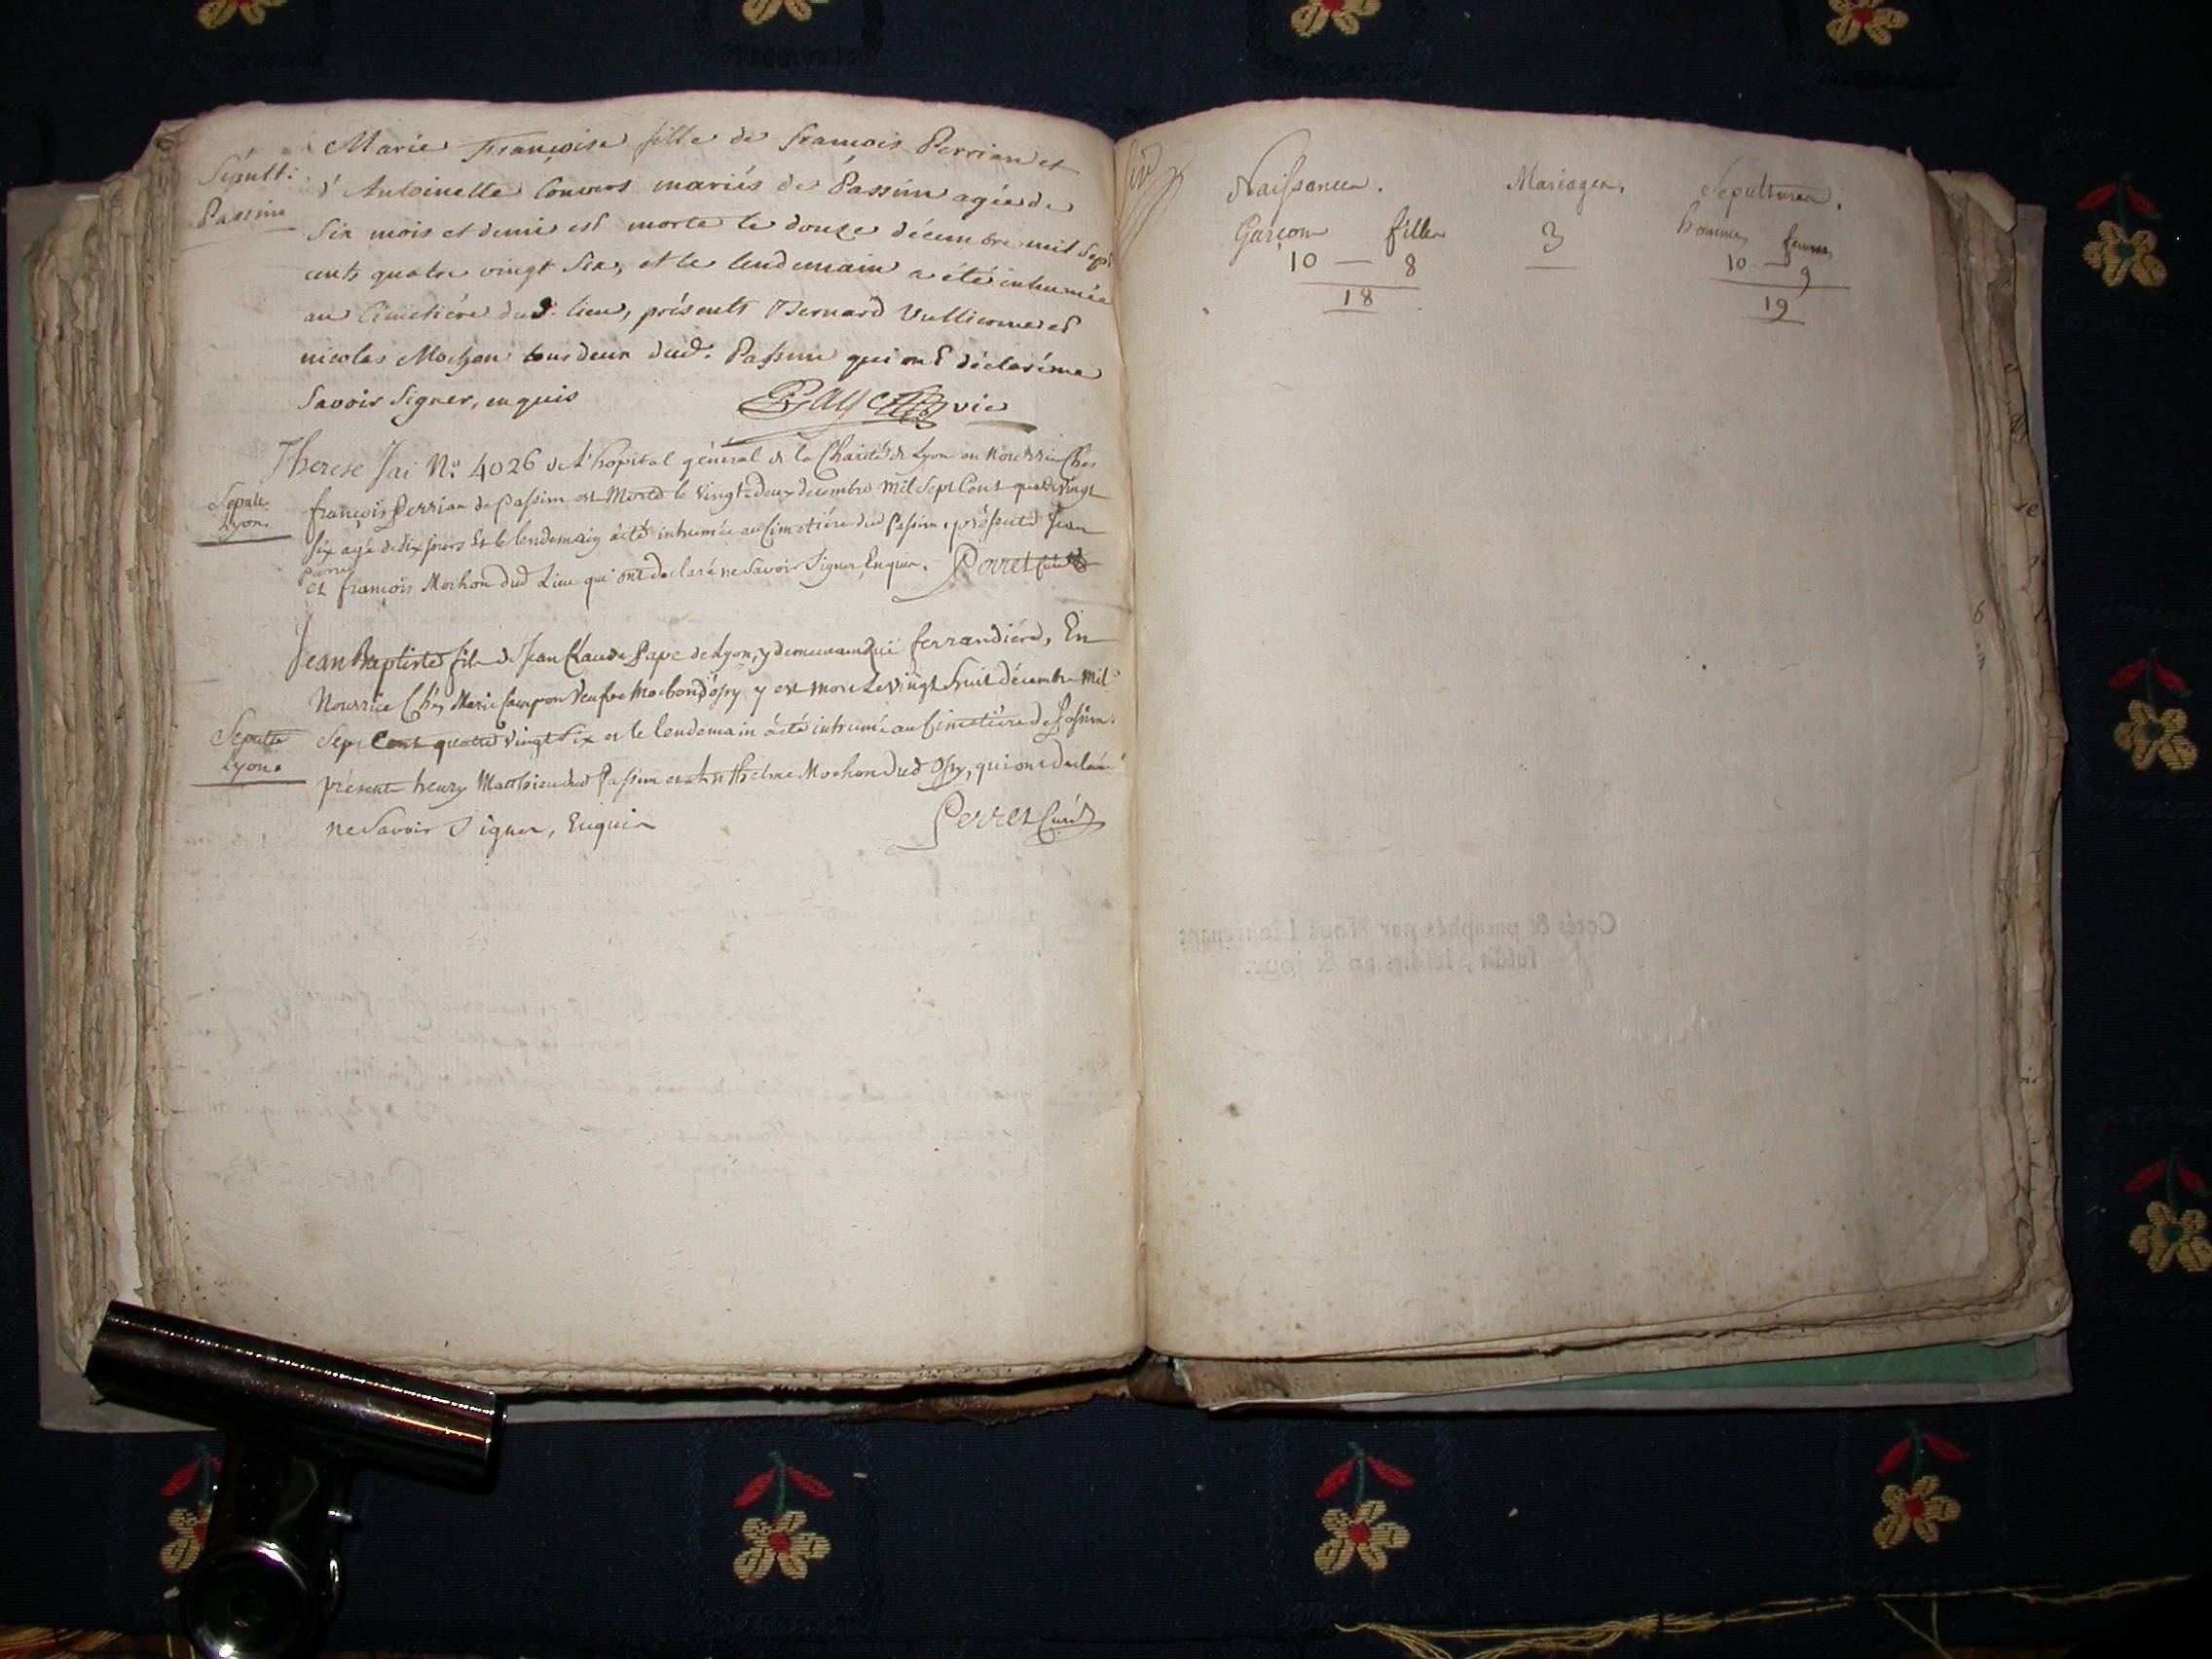 Marie Françoise fille de françois Perrian et
Sépult: d'Antoinette Convers mariés de Passin agée de
Passin
Six mois et demi est morte le douze décembre mil Sept
cents quatre vingt Six, et le lendemain a été inhumée
au Cimetiére dud. lieu, présents Bernard Vullierme et
nicolas Mochon tous deux dud. Passin qui ont déclaré ne
Savoir Signer, enquis vic
Therese Jai N.o 4026 de L'hopital général de la Charité de Lyon en Nourrice Ches
Sepult. Lyon.
françois Perrian de Passin est Morte le vingt deux decembre Mil Sept Cent quatre Vingt
Six agée de dix jours Et le lendemain à été inhumée au Cimetiére dud Passin. présents Jean
Pierre
et françois Mochon dud Lieu qui ont declaré ne Savoir Signer, Enquis. Perret Curé
Jean Baptiste fils de Jean Claude Pape de Lyon, y demeurant Ruë ferrandiére, En
Nourrice Chés Marie veufve Mochon d'ossy y est mort Le vingt huit décembre Mil
Sepultre Sept Cent quatre vingt Six et le lendemain à été inhumé au Cimetiére de Passin.
Lyon.
présents henry Matthieu dud Passin et Anthelme Mochon dud Ossy, qui ont declaré
ne Savoir Signer, Enquis Perret Curé
Naissances. Mariages. Sepultures.
Garçons filles 3 hommes femmes
10 — 8 10 — 9
18 19
Cotés & paraphés par Nous Lieutenant
susdit, lesdits an & jour.